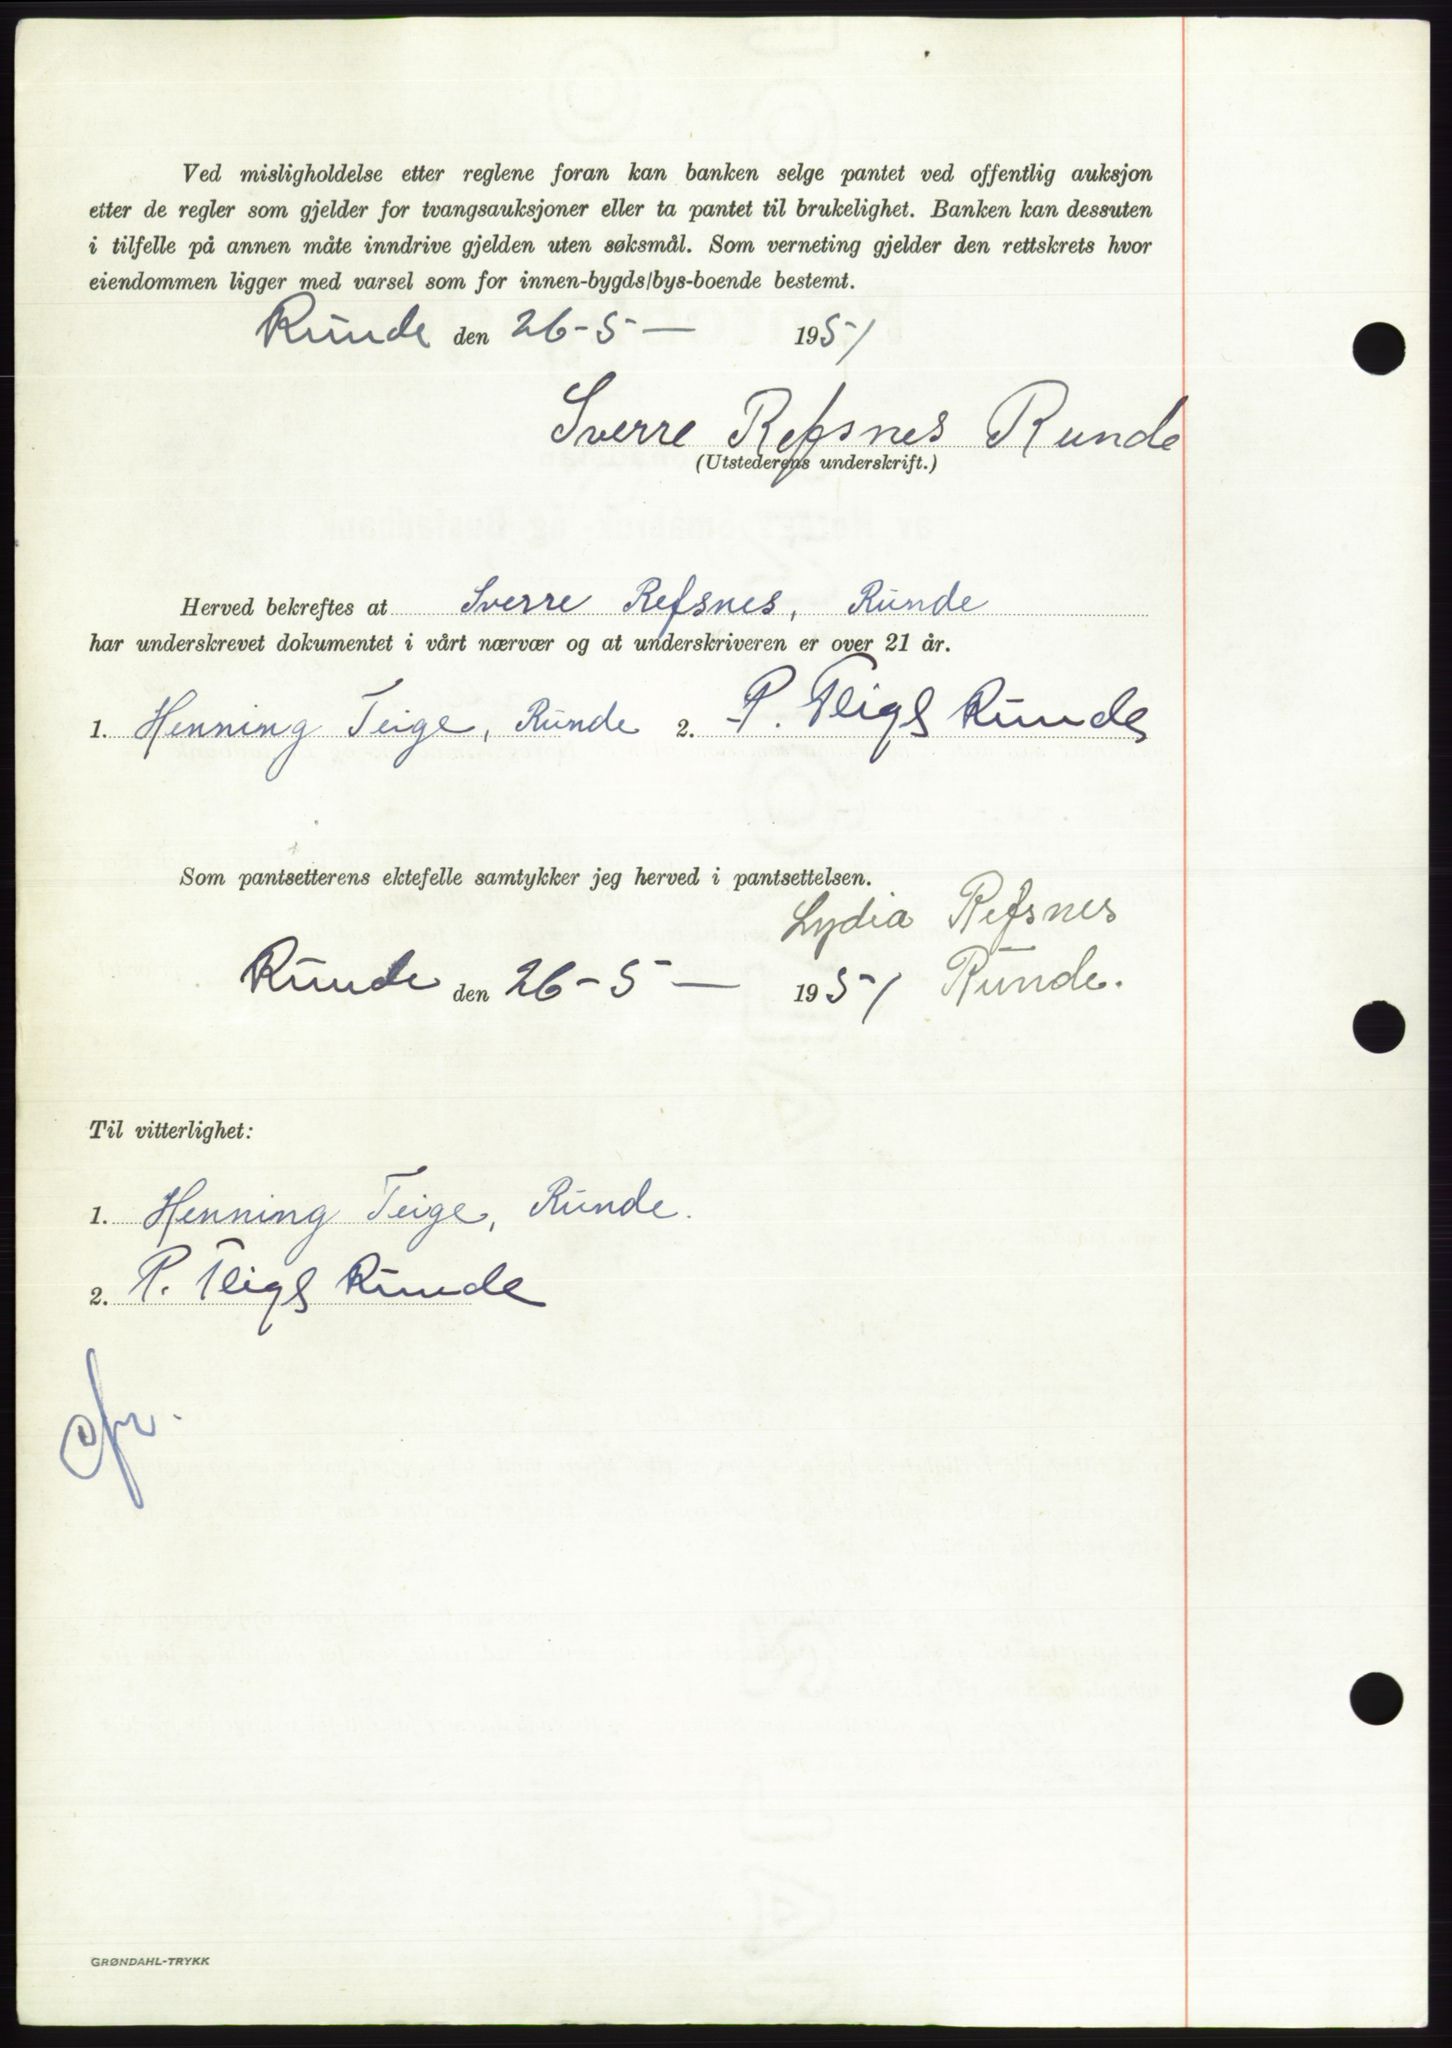 Ved misligholdelse etter reglene foran kan banken selge pantet ved offentlig auksjon
etter de regler som gjelder for tvangsauksjoner eller ta pantet til brukelighet. Banken kan dessuten
i tilfelle på annen måte inndrive gjelden uten søksmål. Som verneting gjelder den rettskrets hvor
eiendommen ligger med varsel som for innen-bygds/bys-boende bestemt.
Runde den 26-5- 1951
Sverre Refsnes Runde
(Utstederens underskrift.)
Herved bekreftes at Sverre Refsnes, Runde
har underskrevet dokumentet i vårt nærvær og at underskriveren er over 21 år.
1. Henning Teige, Runde 2. P. Teige Runde
Som pantsetterens ektefelle samtykker jeg herved i pantsettelsen.
Lydia Refsnes
Runde den 26-5- 1951 Runde.
Til vitterlighet:
1. Henning Teige, Runde.
2. P. Teige Runde
GRØNDAHL-TRYKK